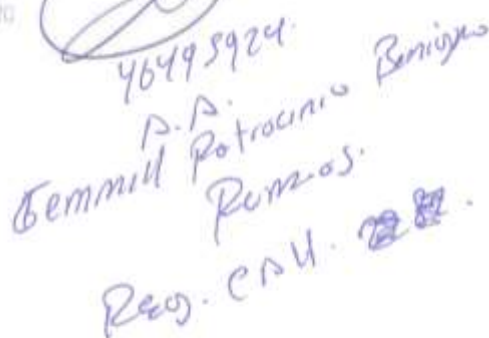 46495924.
A.A.
Gemmill Patrocinio Benigno
Ramos.
Reg. CAU.